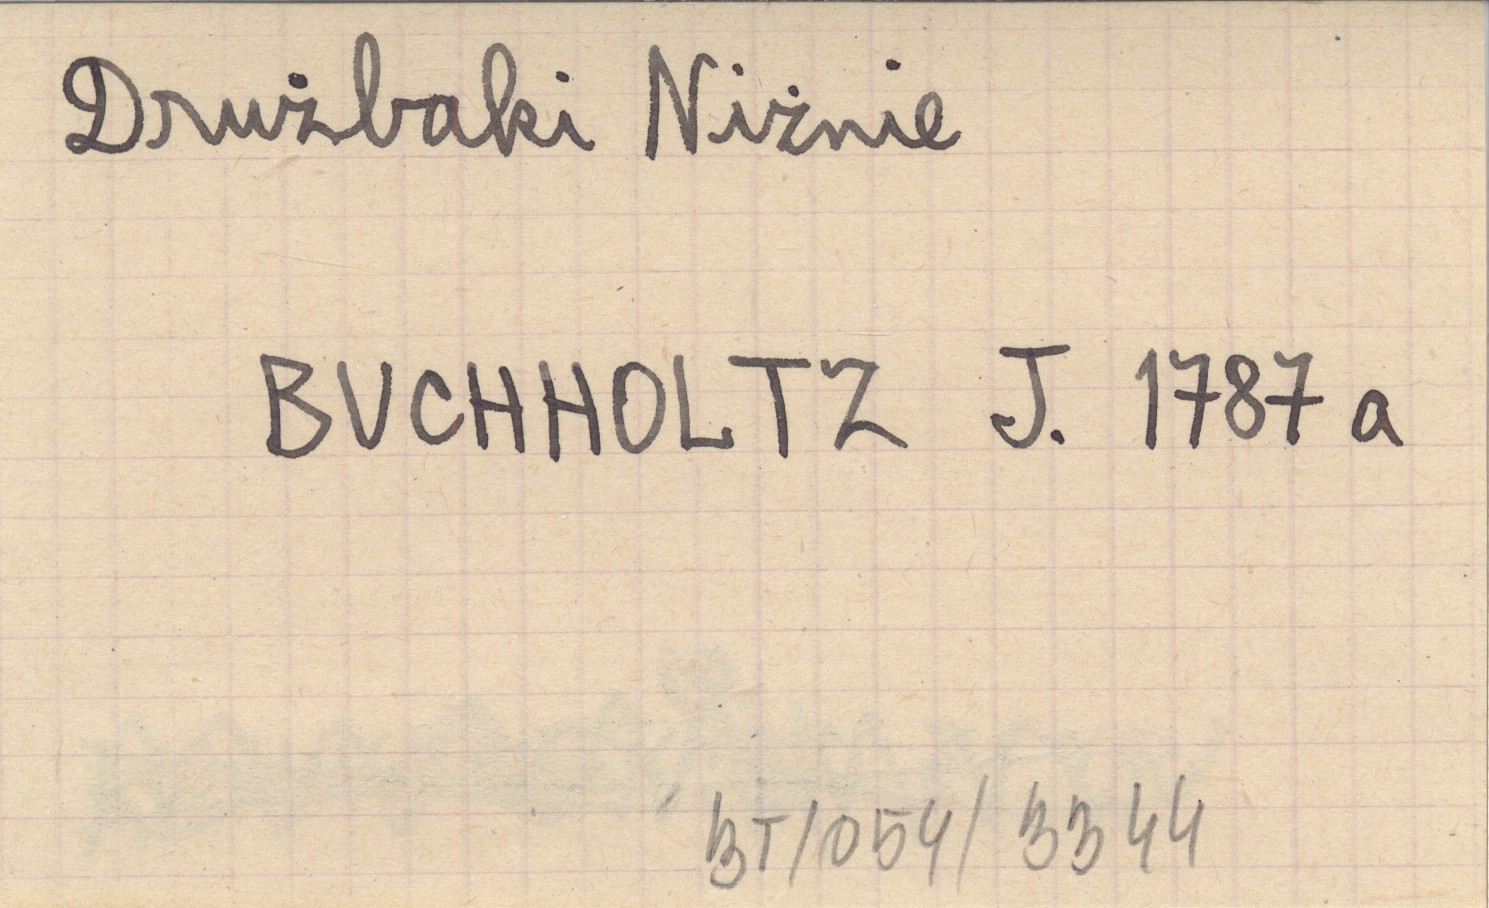 Drużbaki Niżnie
BUCHHOLTZ J. 1787 a
BT/054/3344